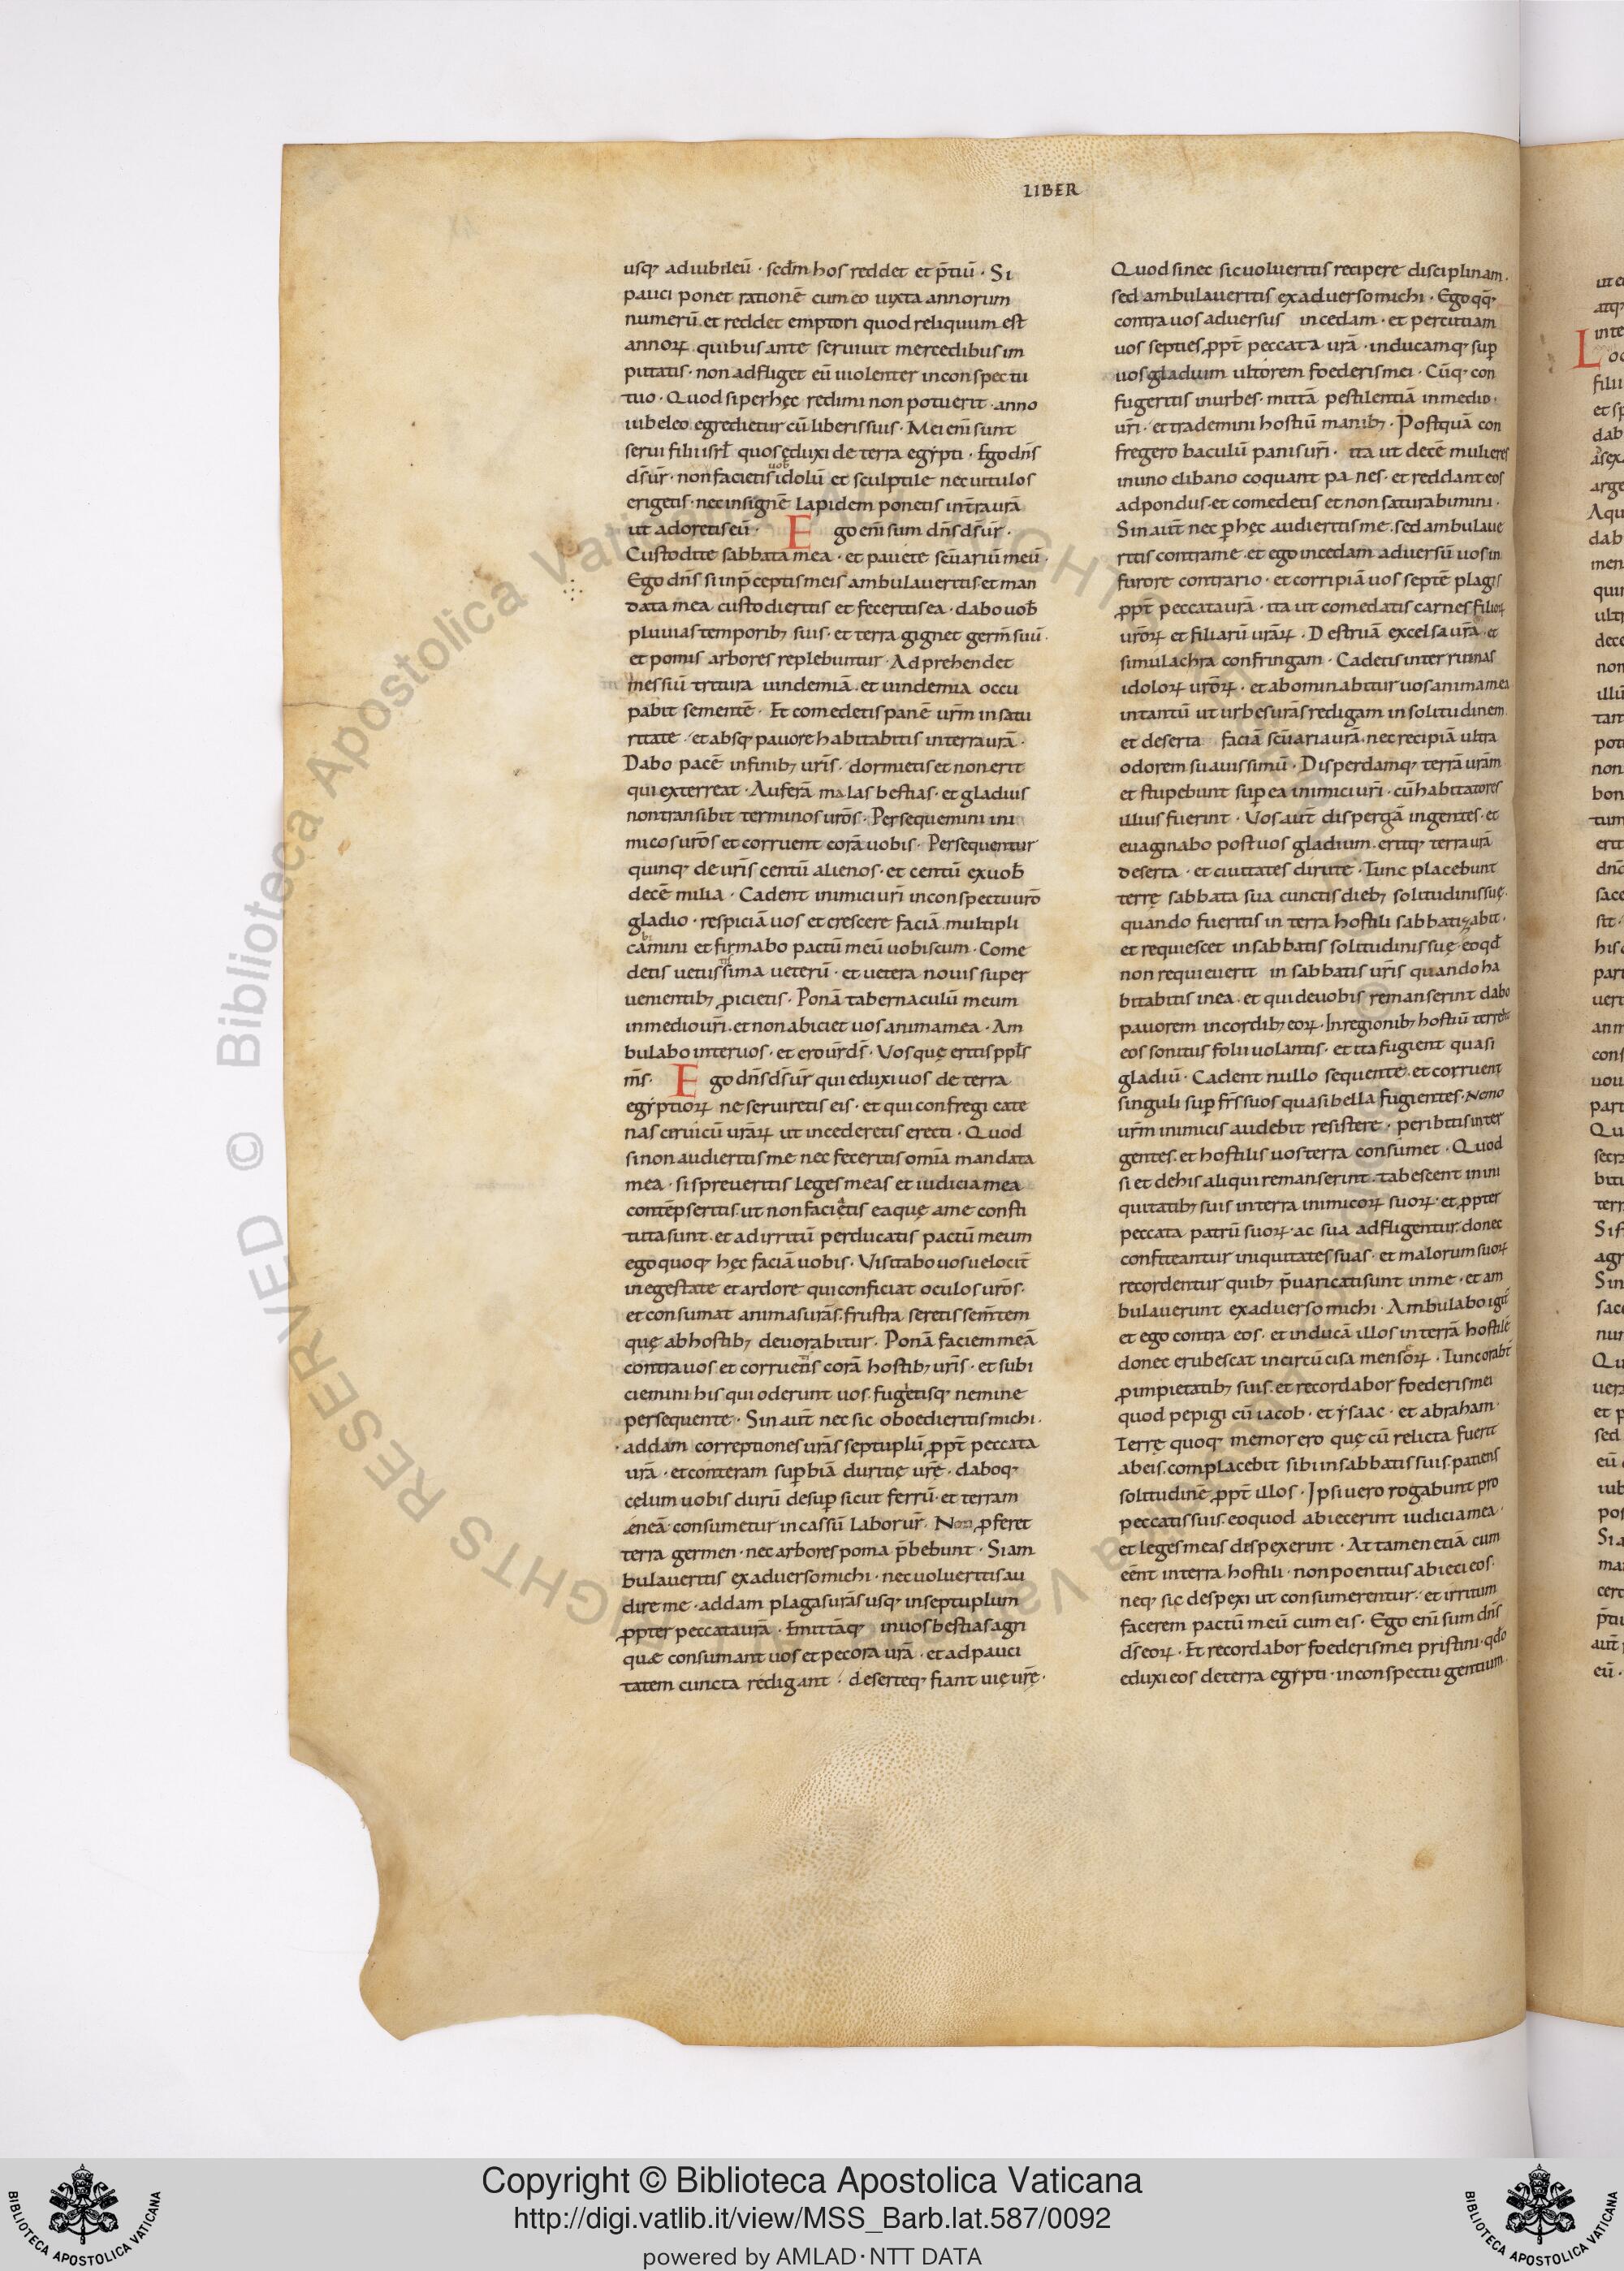 LIBER
usq; ad iubileū · scđm hos reddet et p̄tiū · Si
pauci ponet rationē cum eo iuxta annorum
numerū et reddet emptori quod reliquum est
annoꝝ quibus ante seruiuit mercedibus im
putatis · non adfliget eū uiolenter in conspectu
tuo · Quod si per hęc redimi non potuerit · anno
iubeleo egredietur cū liberis suis · Mei eni sunt
serui filii isrł quos eduxi de terra egẏpti · Ego dn̄s
ds̄ ur̄ · non facietis uob idolū et sculptile nec titulos
erigetis · nec insignē lapidem ponetis in tr̄a urā
ut adoretis eū · Ego eni sum dn̄s ds̄ ur̄ ·
Custodite sabbata mea · et pauete sc̄uariū meū ·
Ego dn̄s si in p̄ceptis meis ambulaueritis et man
data mea custodieritis et feceritis ea · dabo uob̄
pluuias temporib; suis · et terra gignet germ̄ suū ·
et pomis arbores replebuntur · Adprehendet
messiū tritura uindemiā · et uindemia occu
pabit sementē · Et comedetis panē urm̄ in satu
ritate · et absq; pauore habitabitis in terra urā ·
Dabo pacē in finib; uris · dormietis et non erit
qui exterreat · Auferā malas bestias · et gladius
non transibit terminos uros · Persequemini ini
micos uros et corruent corā uobis · Persequentur
quinq; de uris centū alienos · et centū ex uob̄
decē milia · Cadent inimici uri in conspectu uro
gladio · respiciā uos et crescere faciā multipli
camini et firmabo pactū meū uobiscum · Come
detis uetustissima ueterū · et uetera nouis super
uenientib; ꝓicietis · Ponā tabernaculū meum
in medio uri · et non abiciet uos anima mea · Am
bulabo inter uos · et ero ur̄ ds̄ · Vosquę eritis ppls̄
ms̄ · Ego dn̄s ds̄ ur̄ qui eduxi uos de terra
egẏptioꝝ ne seruiretis eis · et qui confregi cate
nas ceruicū uraꝝ ut incederetis erecti · Quod
si non audieritis me nec feceritis omīa mandata
mea · si spreueritis leges meas et iudicia mea
contēpseritis · ut non faciatis ea quę a me consti
tuta sunt · et ad irritū perducatis pactū meum
ego quoq; hęc faciā uobis · Visitabo uos uelocit̄
in egestate et ardore qui conficiat oculos uros ·
et consumat animas urās · frustra seretis sem̄tem
quę ab hostib; deuorabitur · Ponā faciem meā
contra uos et corruetis corā hostib; uris · et subi
ciemini his qui oderunt uos · fugietisq; nemine
persequente · Sin aut̄ nec sic oboedieritis michi ·
addam correptiones urās septuplū ꝓpt̄ peccata
urā · et conteram supbiā duritię urę · daboq;
celum uobis durū desup sicut ferrū · et terram
ęneā · consumetur in cassū labor ur̄ · Non ꝓferet
terra germen · nec arbores poma p̄bebunt · Si am
bulaueritis ex aduerso michi · nec uolueritis au
dire me · addam plagas urās usq; in septuplum
ꝓpter peccata urā · Emittāq; in uos bestias agri
quæ consumant uos et pecora urā · et ad pauci
tatem cuncta redigant · deserteq; fiant uię urę ·
Quod si nec sic uolueritis recipere disciplinam ·
sed ambulaueritis ex aduerso michi · Ego qq;
contra uos aduersus incedam · et percutiam
uos septies ꝓpt̄ peccata urā · inducamq; sup
uos gladium ultorem foederis mei · Cūq; con
fugeritis in urbes · mittā pestilentiā in medio
uri · et trademini hostiū manib; · Postquā con
fregero baculū panis uri · ita ut decē mulieres
in uno clibano coquant panes · et reddant eos
ad pondus · et comedetis et non saturabimini ·
Sin aut̄ nec p hęc audieritis me · sed ambulaue
ritis contra me · et ego incedam aduersū uos in
furore contrario · et corripiā uos septē plagis
ꝓpt̄ peccata urā · ita ut comedatis carnes filioꝝ
uroꝝ et filiarū uraꝝ · Destruā excelsa urā · et
simulachra confringam · Cadetis inter ruinas
idoloꝝ uroꝝ · et abominabitur uos anima mea
in tantū ut urbes urās redigam in solitudinem
et deserta faciā sc̄uaria urā · nec recipiā ultra
odorem suauissimū · Disperdamq; terrā urām
et stupebunt sup ea inimici uri · cū habitatores
illius fuerint · Vos aut̄ dispergā in gentes · et
euaginabo post uos gladium · eritq; terra urā
deserta · et ciuitates dirutę · Tunc placebunt
terrę sabbata sua cunctis dieb; solitudinis suę ·
quando fueritis in terra hostili sabbatizabit ·
et requiescet in sabbatis solitudinis suę · eo qđ
non requieuerit in sabbatis uris quando ha
bitabitis in ea · et qui de uobis remanserint dabo
pauorem in cordib; eoꝝ · In regionib; hostiū terrebit
eos sonitus folii uolantis · et ita fugient quasi
gladiū · Cadent nullo sequente · et corruent
singuli sup frs̄ suos quasi bella fugientes · Nemo
urm̄ inimicis audebit resistere · peribitis inter
gentes · et hostilis uos terra consumet · Quod
si et de his aliqui remanserint · tabescent in ini
quitatib; suis in terra inimicoꝝ suoꝝ · et ꝓpter
peccata patrū suoꝝ · ac sua adfligentur · donec
confiteantur iniquitates suas · et malorum suoꝝ
recordentur quib; p̄uaricati sunt in me · et am
bulauerunt ex aduerso michi · Ambulabo igit̄
et ego contra eos · et inducā illos in terrā hostilē
donec erubescat incircūcisa mens eoꝝ · Tunc orabt̄
ꝓ impietatib; suis · et recordabor foederis mei
quod pepigi cū iacob · et ẏsaac · et abraham ·
Terrę quoq; memor ero quę cū relicta fuerit
ab eis · complacebit sibi in sabbatis suis · patiens
solitudinē ꝓpt̄ illos · Ipsi uero rogabunt pro
peccatis suis · eo quod abiecerint iudicia mea ·
et leges meas despexerint · Attamen etiā cum
eēnt in terra hostili · non poenitus abieci eos ·
neq; sic despexi ut consumerentur · et irritum
facerem pactū meū cum eis · Ego eni sum dn̄s
ds̄ eoꝝ · Et recordabor foederis mei pristini · qdo
eduxi eos de terra egẏpti · in conspectu gentium ·
Copyright © Biblioteca Apostolica Vaticana
http://digi.vatlib.it/view/MSS_Barb.lat.587/0092
powered by AMLAD·NTT DATA